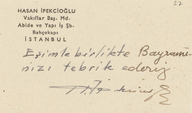 57
HASAN İPEKCİOĞLU
Vakıflar Baş. Md.
Abide ve Yapı İş Şb.
Bahçekapı
İSTANBUL
Eşimle birlikte Bayramı-
nızı tebrik ederiz